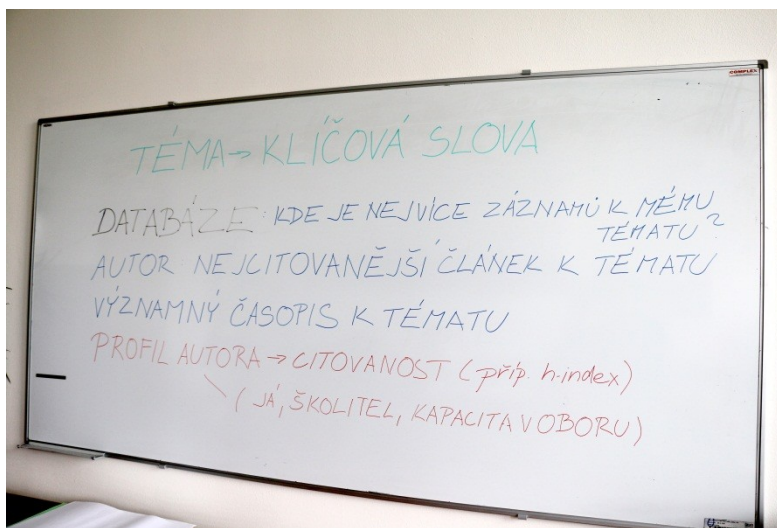 COMPLEX
TÉMA → KLÍČOVÁ SLOVA
DATABÁZE: KDE JE NEJVÍCE ZÁZNAMŮ K MÉMU
TÉMATU?
AUTOR: NEJCITOVANĚJŠÍ ČLÁNEK K TÉMATU
VÝZNAMNÝ ČASOPIS K TÉMATU
PROFIL AUTORA → CITOVANOST (příp. h-index)
(JÁ, ŠKOLITEL, KAPACITA V OBORU)